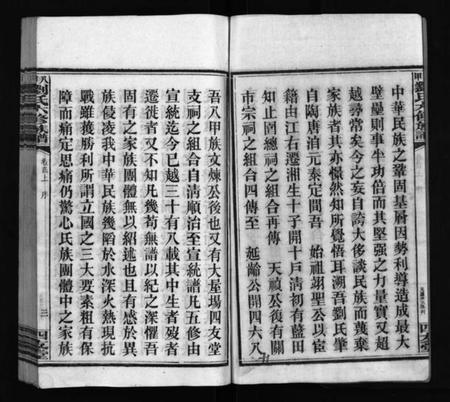 中華民族之鞏固基層因勢利導造成最大
壁壘則事半功倍而其堅強之力量實又超
越尋常矣今之妄自誇大侈談民族而蔑棄
家族者其亦憬然知所覺悟耳溯吾劉氏肇
自陶唐洎元泰定間吾　始祖翊聖公以宦
籍由江右遷湘生十子開十戶清初有藍田
知止園總祠之組合再傳　天禎公後有關
市宗祠之組合四傳至　延齡公開四六八
吾八甲族文煉公後也又有大屋場四友堂
支祠之組合自清順治至宣統譜凡五修由
宣統迄今已越三十有八載其中生者歿者
遷徙者又不知凡幾苟無譜以紀之深懼吾
固有之家族團體無以紹述也且有感於異
族侵凌我中華民族幾蹈於水深火熱現抗
戰雖獲勝利所謂立國之三大要素粗有保
障而痛定思痛仍驚心民族團體中之家族
八劉氏六修族譜
卷首上　序
三
四友堂